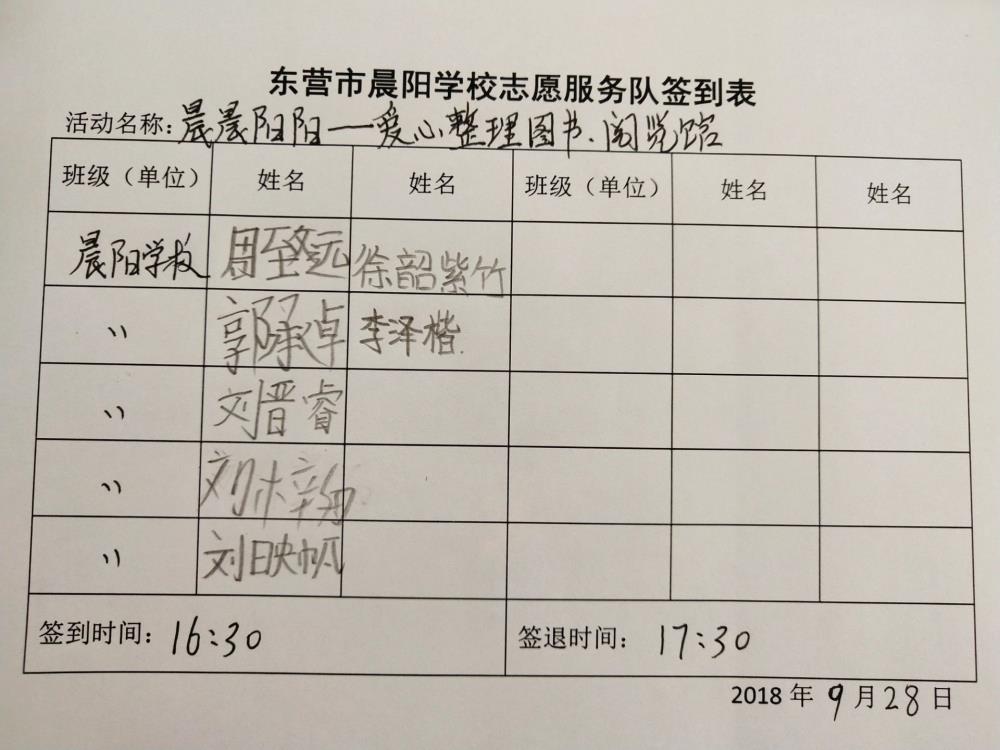 东营市晨阳学校志愿服务队签到表
活动名称：晨晨阳阳——爱心整理图书、阅览馆
班级（单位） 姓名 姓名 班级（单位） 姓名 姓名
晨阳学校 周至远 徐韶紫竹
〃 郭承倬 李泽楷
〃 刘晋睿
〃 刘
〃 刘映帆
签到时间：16:30 签退时间：17:30
2018年9月28日